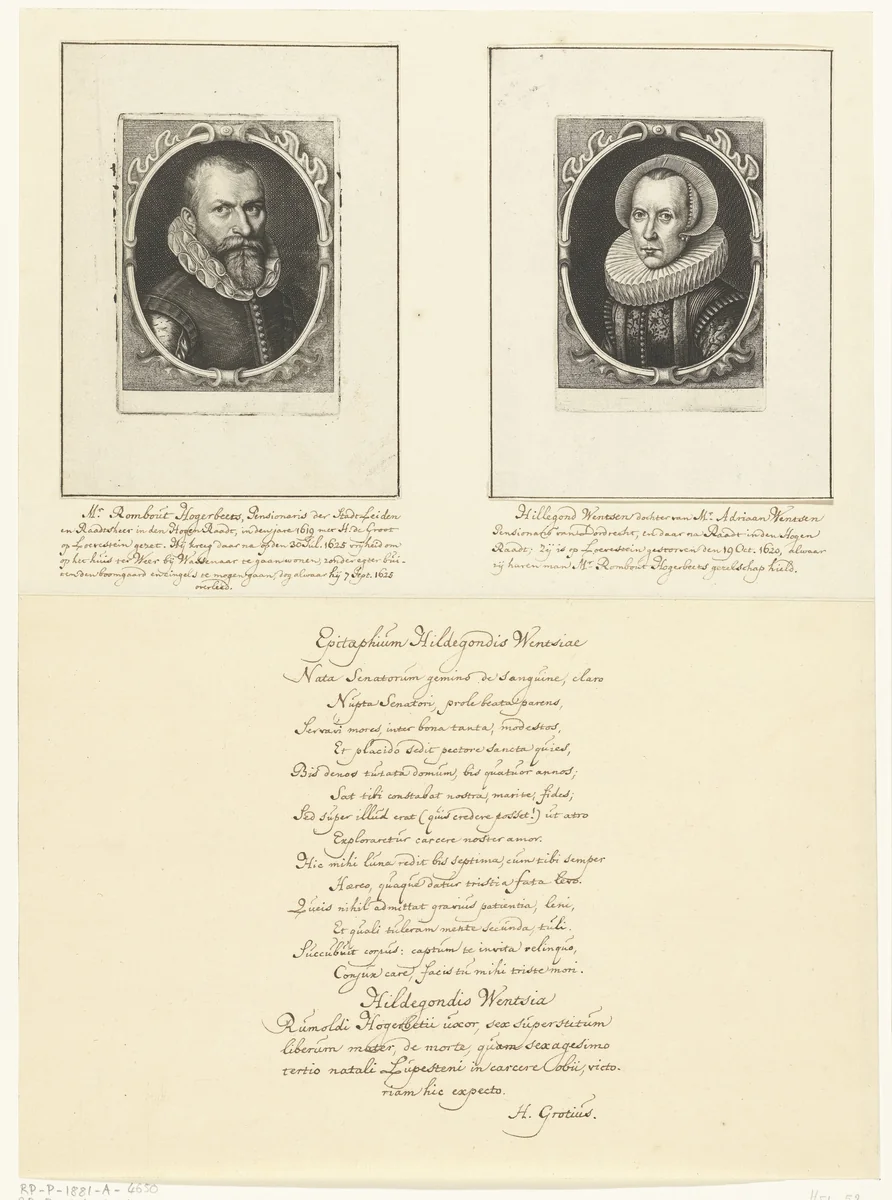 Mr. Rombout Hogerbeets, Pensionaris der Stadt Leiden
en Raadtsheer in den Hogen Raadt, in den jare 1619 met H. de Groot
op Loevestein gezet. Hij kreeg daar na op den 30 Jul. 1625 vrijheid om
op het huis ter Weer bij Wassenaar te gaan wonen, zonder egter bui-
ten den boomgaard en cingels te mogen gaan, dog alwaar hij 7 Sept. 1625
overleed.
Hillegond Wentsen dochter van Mr. Adriaan Wentsen
Pensionaris van Dordrecht, en daar na Raadt in den Hogen
Raadt, Zij is op Loevestein gestorven den 19 Oct. 1620, alwaar
zij haren man Mr. Rombout Hogerbeets gezelschap hield.
Epitaphium Hildegondis Wentsiae
Nata Senatorum gemino de sanguine, claro
Nupta Senatori, prole beata parens,
Servavi mores, inter bona tanta, modestos,
Et placido sedit pectore sancta quies,
Bis denos tutata domum, bis quatuor annos;
Sat tibi constabat nostra, marite, fides;
Sed super illud erat (quis credere posset!) ut atro
Exploraretur carcere noster amor.
Hic mihi luna redit bis septima, cum tibi semper
Haereo, quaque datur tristia fata levo.
Queis nihil admittat gravius patientia, leni,
Et quali tuleram mente secunda, tuli.
Succubuit corpus: captum te invita relinquo,
Conjux care, facis tu mihi triste mori.
Hildegondis Wentsia
Rumoldi Hogerbetii uxor, sex superstitum
liberum mater, de morte, quam sexagesimo
tertio natali Lupesteni in carcere obii, victo-
riam hic expecto.
H. Grotius.
RP-P-1881-A-4650